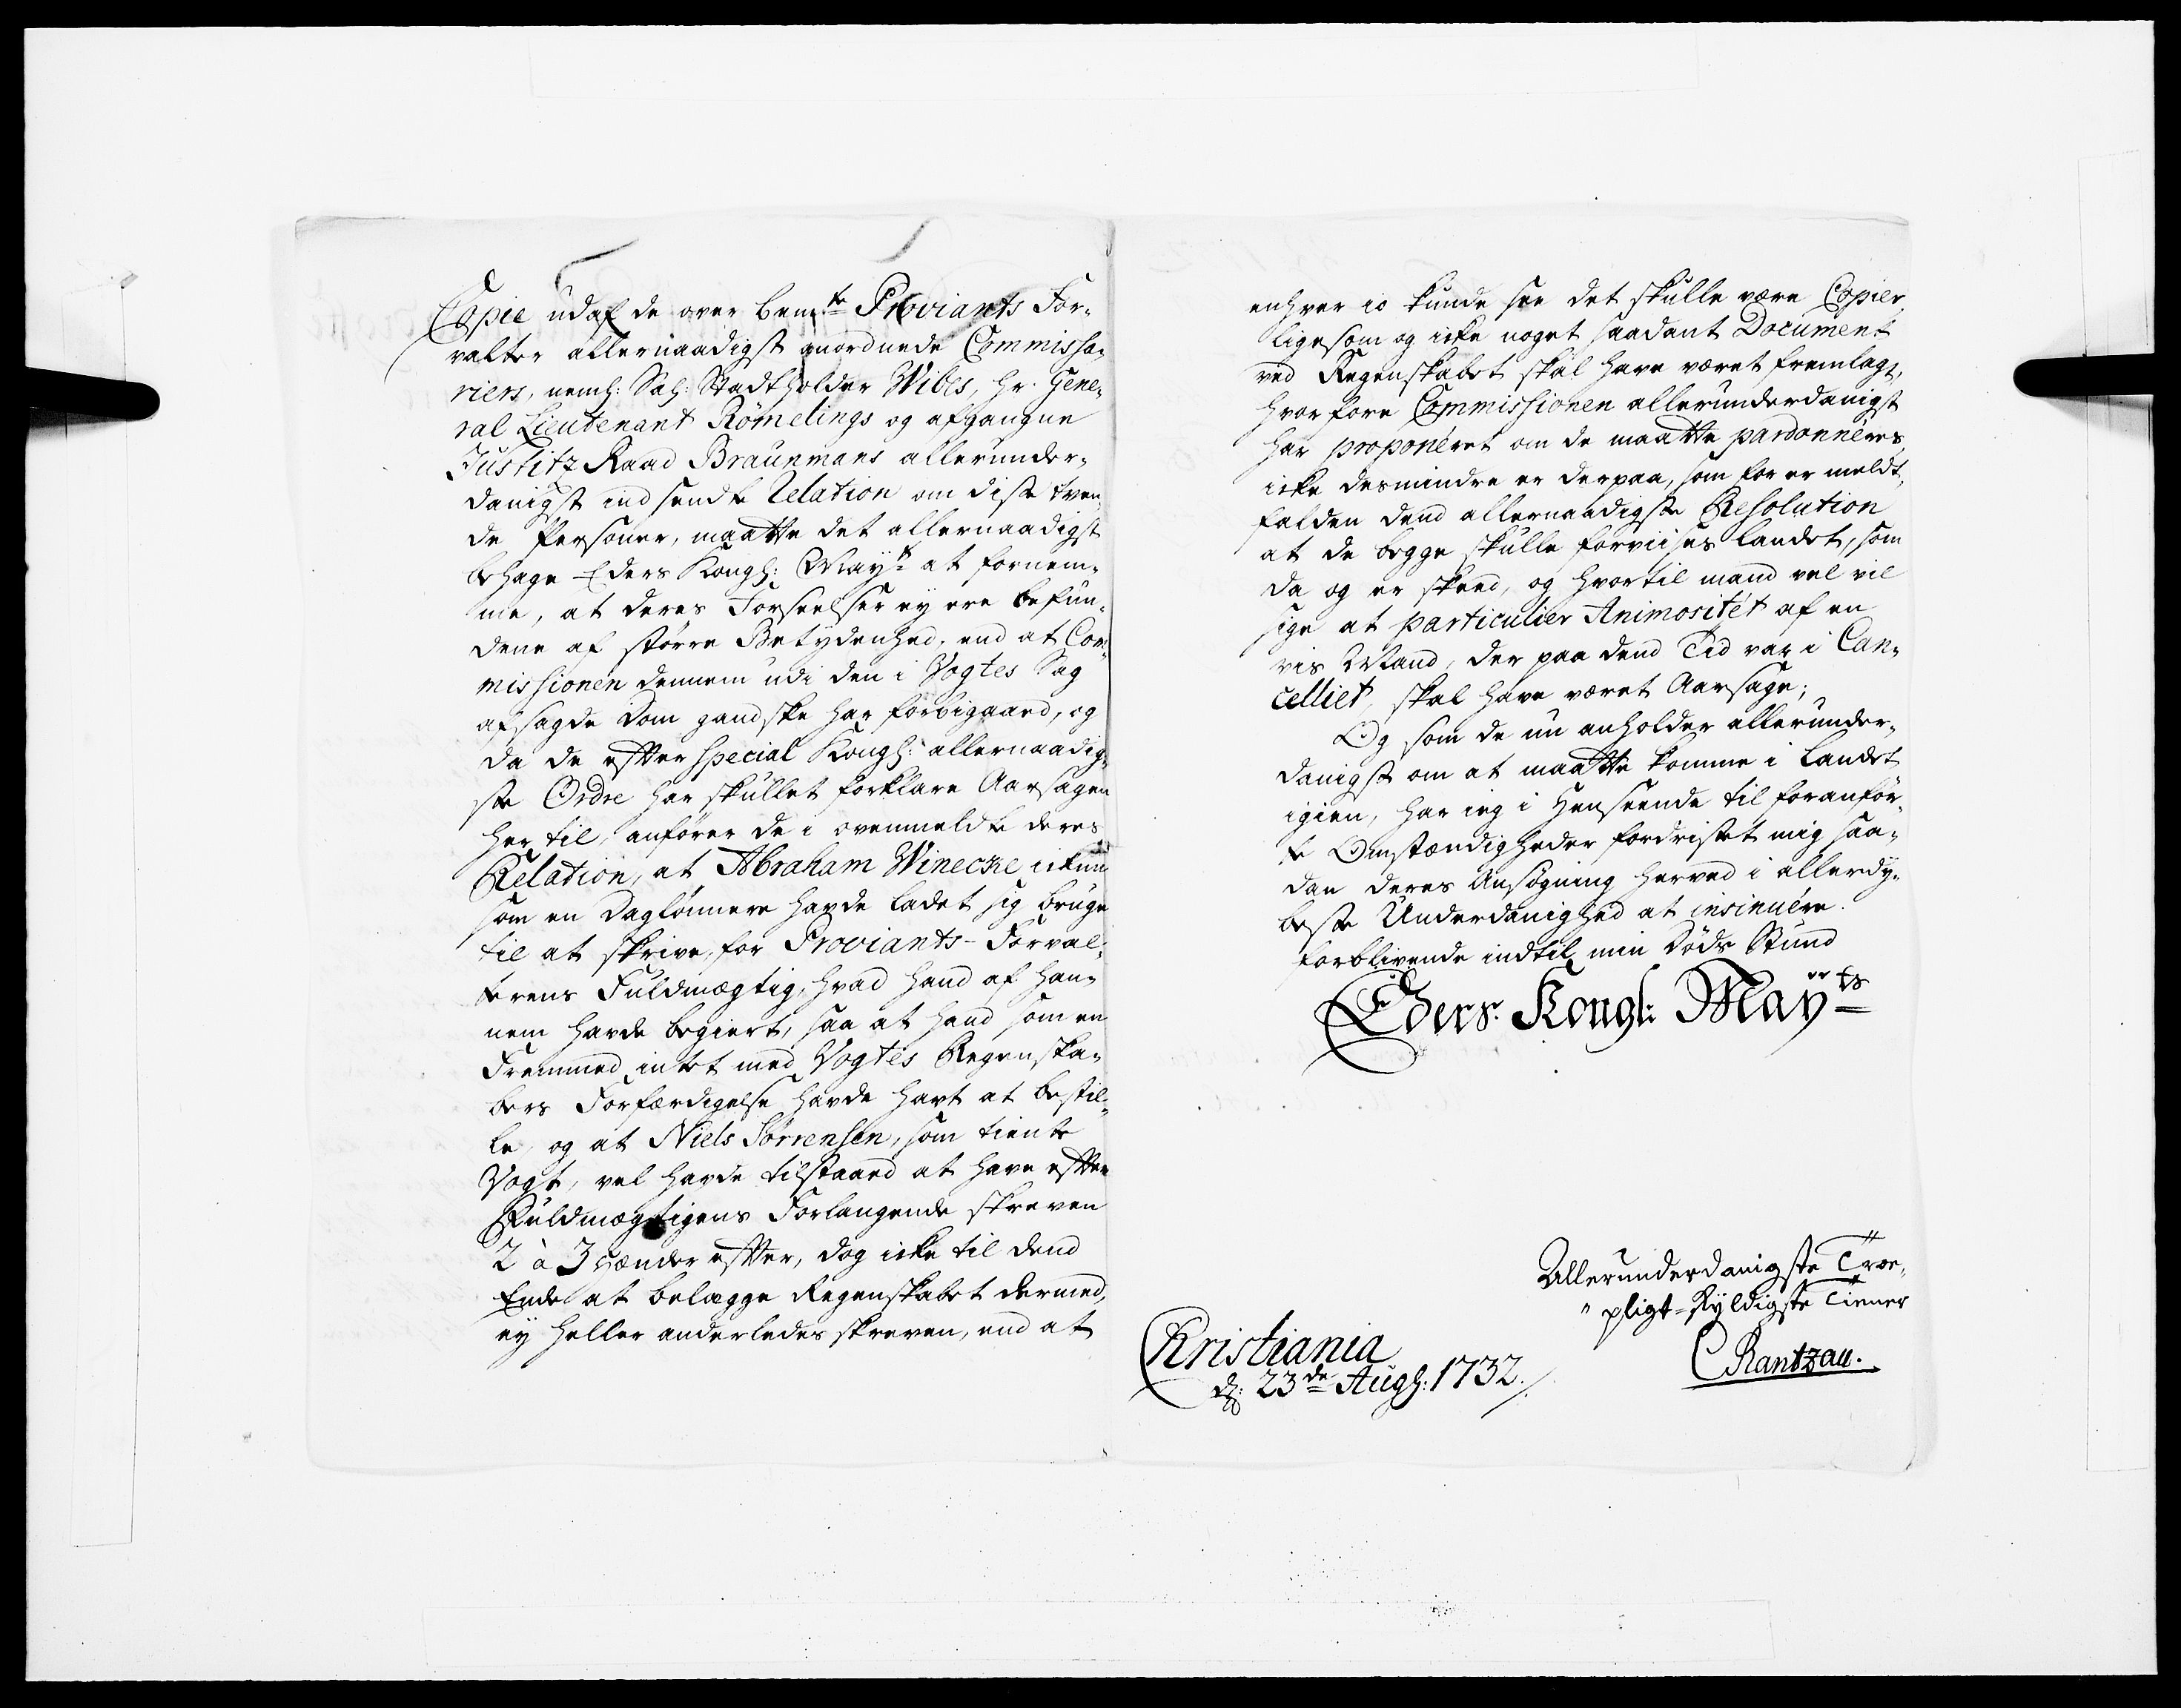 Copie udaf de over bemte Proviants For¬
valter allernaadigst anordnede Commissa¬
riers, neml: Sal: Stadtholder Wibes, hr. Gene¬
ral Lieutenant Römelings og afgangne
Justitz Raad Braunmans allerunder¬
danigst indsendte Relation om disse tven¬
de Personer, maatte det allernaadigst
behage Eders Kongl: Mayt at fornem¬
me, at deres Forseelser ey ere befun¬
dene af större Betydenhed, end at Com¬
missionen dennem udi den i Vogtes Sag
afsagde Dom gandske har forbigaaed, og
da de efter special Kongl: allernaadig¬
ste Ordre har skullet forklare Aarsagen
her til, anförer de i ovenmeldte deres
Relation, at Abraham Winecke ickun
som en Daglönnere havde ladet sig bruge
til at skrive, for Proviants-Forval¬
terens Fuldmægtig, hvad hand af han¬
nem havde begiert, saa at hand som en
Fremmed intet med Vogtes Regenska¬
bers Forfærdigelse havde havt at bestil¬
le, og at Niels Sörrensen, som tiente
Vogt, vel havde tilstaaed at have efter
Fuldmægtigens Forlangende skreven
2 à 3 Hænder efter, dog icke til dend
Ende at belægge Regenskabet dermed,
ey heller anderledes skreven, end at
enhver io kunde see det skulle være Copier,
ligesom og icke noget saadant Document
ved Regenskabet skal have været fremlagt,
hvorfore Commissionen allerunderdanigst
har proponéret om de maatte pardonnéres,
icke desmindre er derpaa, som for er meldt,
falden dend allernaadigste Resolution
at de begge skulle forviises Landet, som
da og er skeed, og hvortil mand vel vil
sige at particulier Animositét af en
vis Mand, der paa dend Tid var i Can¬
celliet, skal have været Aarsage;
Og som de nu anholder allerunder¬
danigst om at maatte komme i Landet
igien, har ieg i Henseende til foranför¬
te Omstændigheder fordristet mig saa¬
dan deres Ansögning herved i allerdy¬
beste Underdanighed at insinuére.
forblivende indtil min Döds Stund
Eders Kongl: Mayts
Allerunderdanigste Troe¬
pligt-skyldigste Tiener
CRantzau.
Kristiania
d: 23de Augs: 1732.